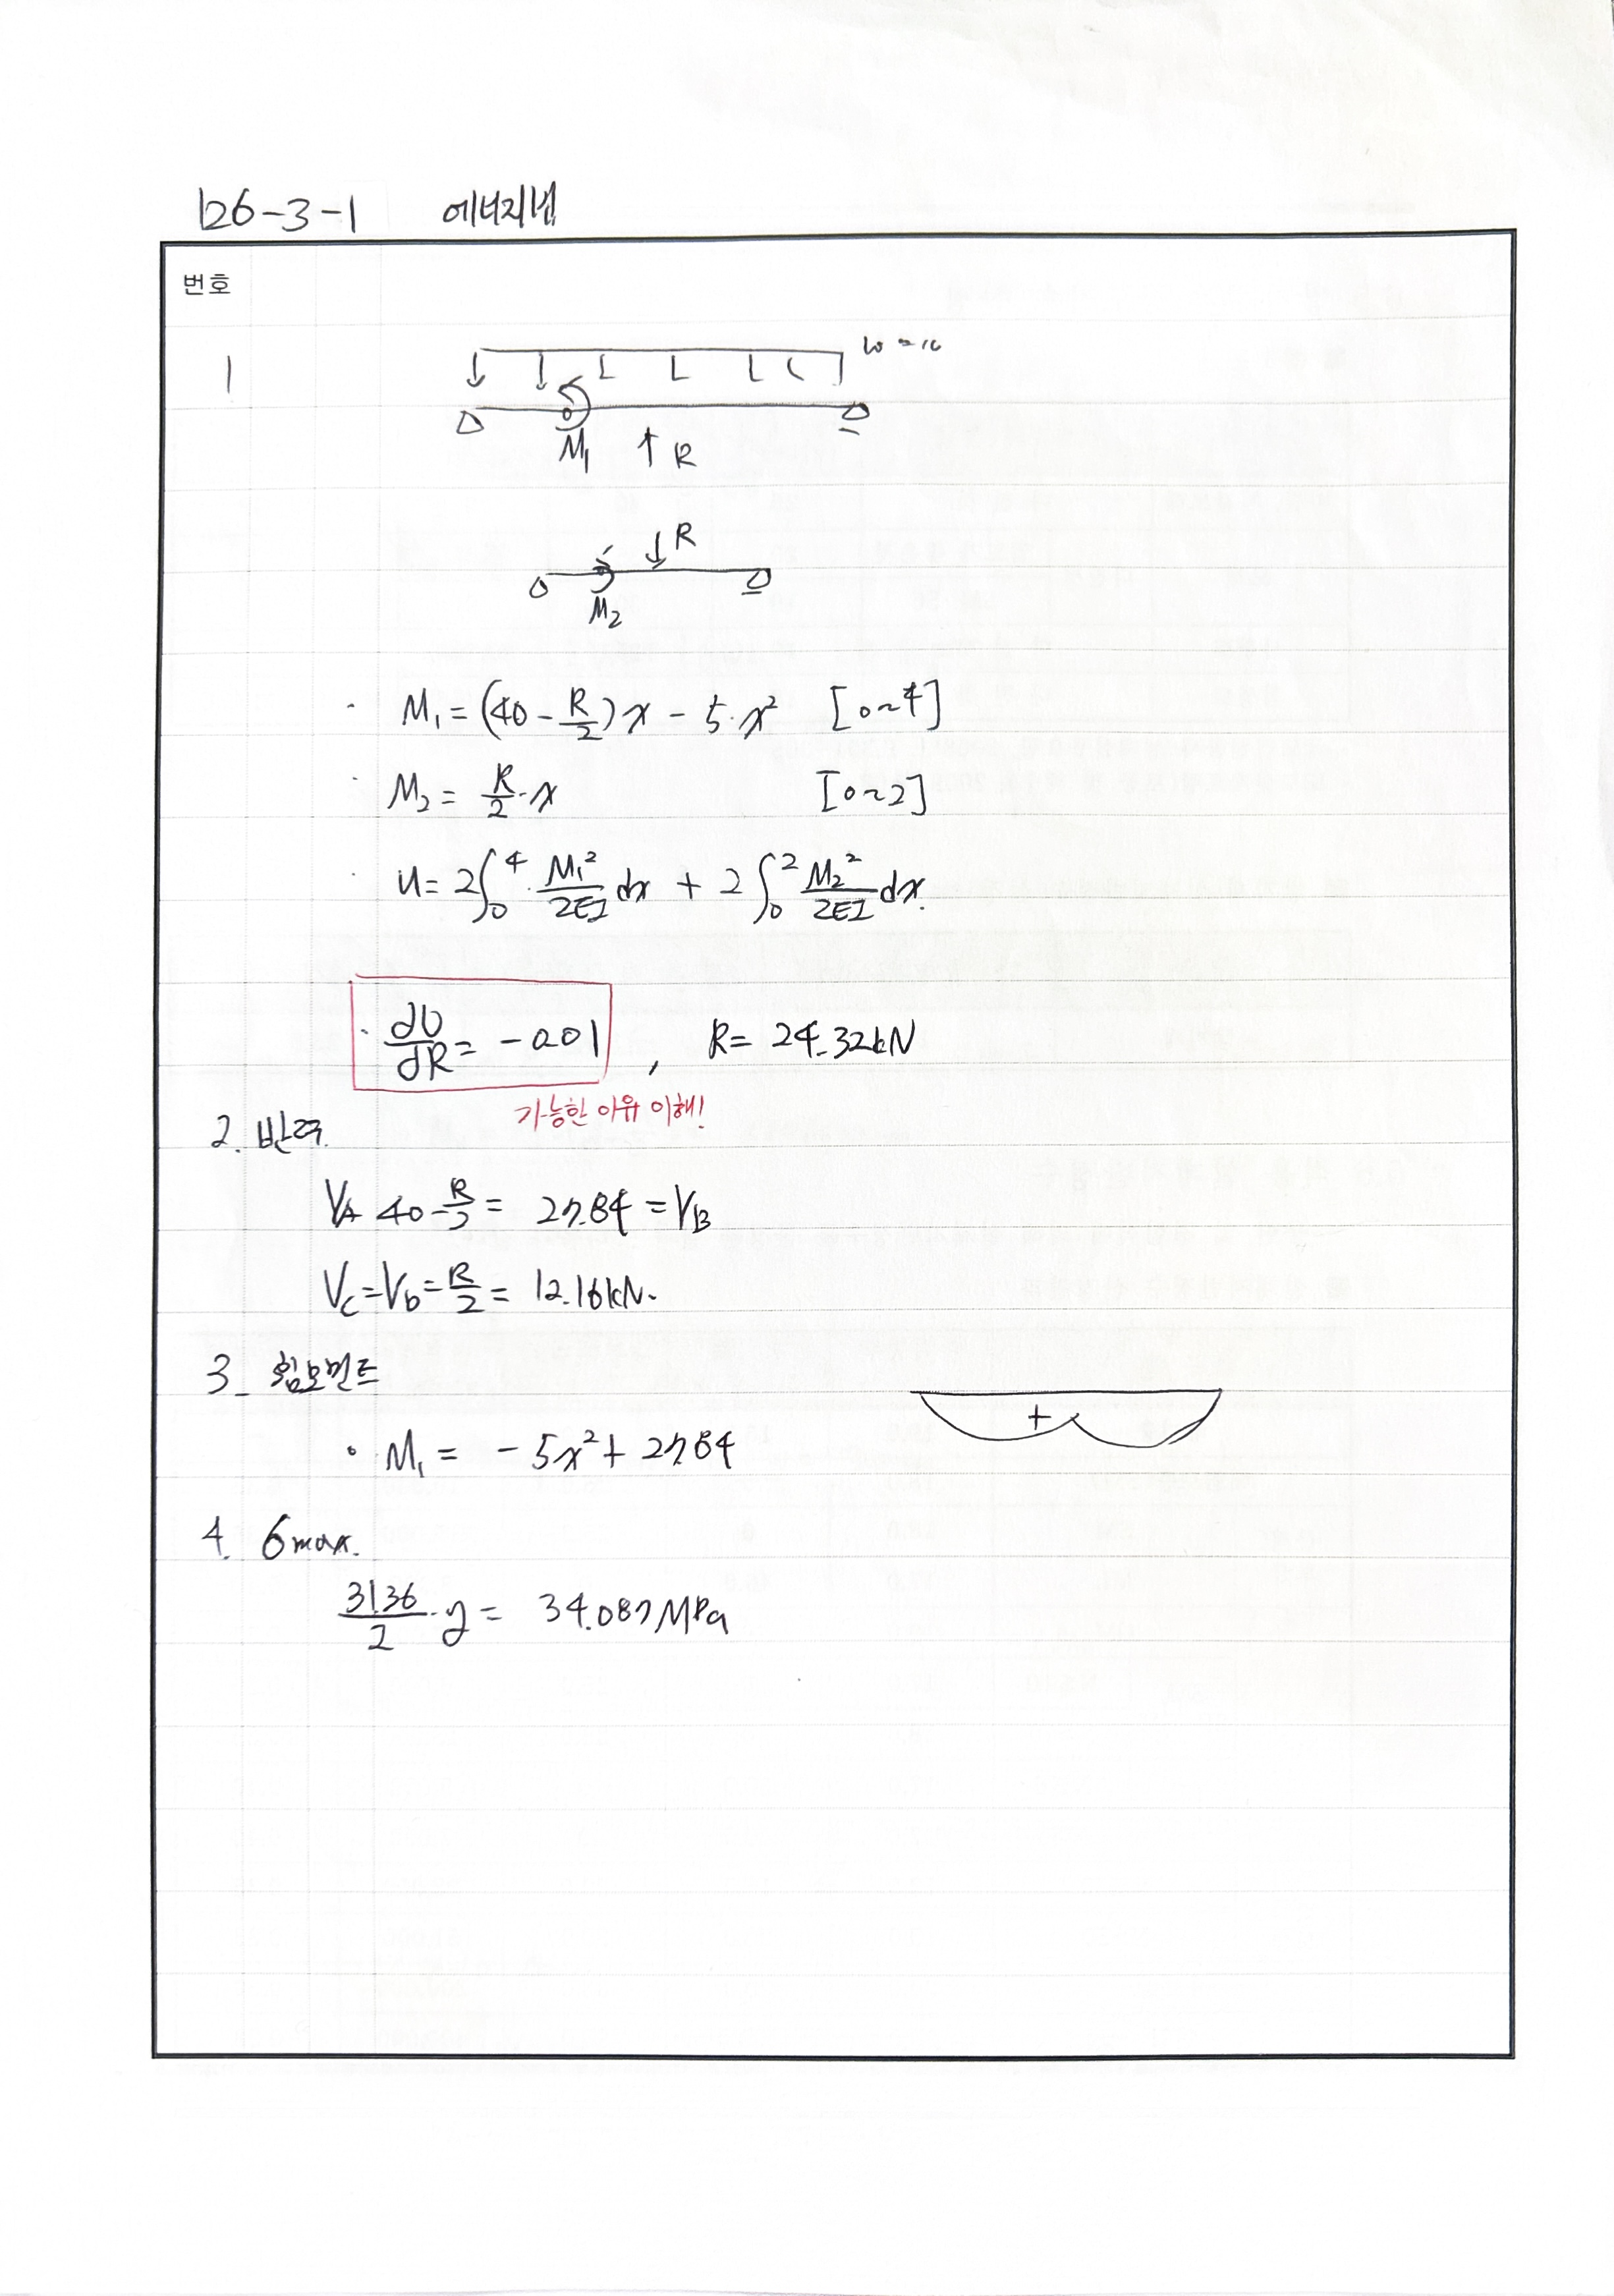 126-3-1 에너지법
번호
1
w=10
M₁ ↑R
↓R
M₂
· M₁ = (40 - R/2)x - 5·x² [0~4]
· M₂ = R/2·x [0~2]
· U = 2∫₀⁴ M₁²/2EI dx + 2∫₀² M₂²/2EI dx.
· dU/dR = -0.01 , R = 24.32kN
가능한 이유 이해!
2. 반력
V_A 40 - R/2 = 27.84 = V_B
V_C = V_D = R/2 = 12.16kN.
3_ 휨모멘트
+
· M₁ = -5x² + 27.84
4. 6max.
31.36/2·y = 34.087MPa